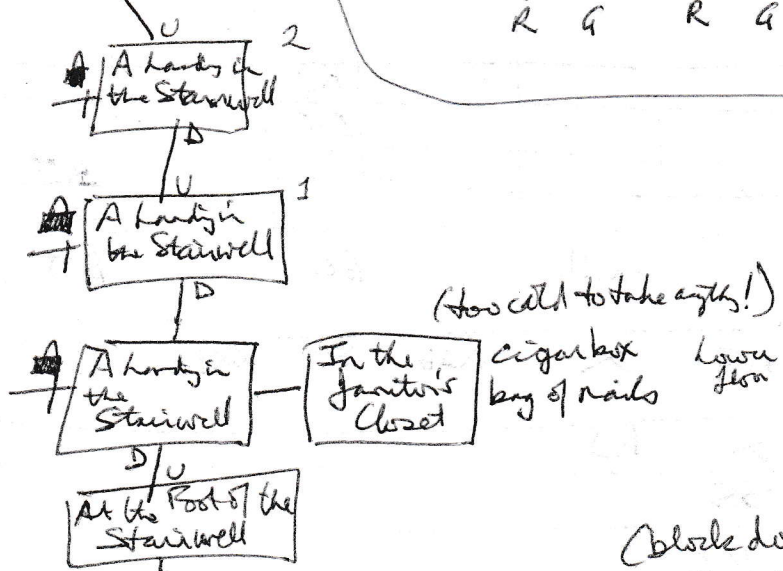 R G R G
U
2
A
A Landing in
the Stairwell
D
U
1
A
A Landing in
the Stairwell
D
(too cold to take anything!)
A
A Landing in
the
Stairwell
In the
Janitor's
Closet
cigar box
bag of nails
Lower
floor
D
U
At the Foot of the
Stairwell
(block